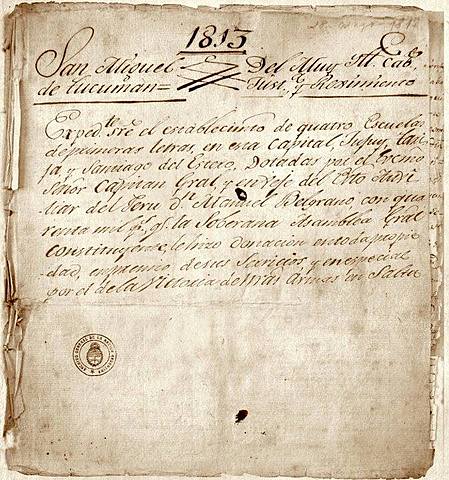 1813
San Miguel Del Muy Ill. Cab.
de Tucuman = Just. y Reximiento
Exped.te sre el establecim.to de quatro Escuelas
de primeras letras, en esta Capital, Jujuy, Tari-
ja y Santiago del Estero, Dotadas por el Exmo
Señor Capitan Gral, y en Jefe del Exto Auxi-
liar del Peru Dn. Manuel Belgrano con qua-
renta mil p.s q.e la Soberana Asamblea Gral
Constituyente, le hizo donacion en toda propie-
dad, en premio de sus Servicios y en especial
por el de la Victoria de Ntras Armas en Salta